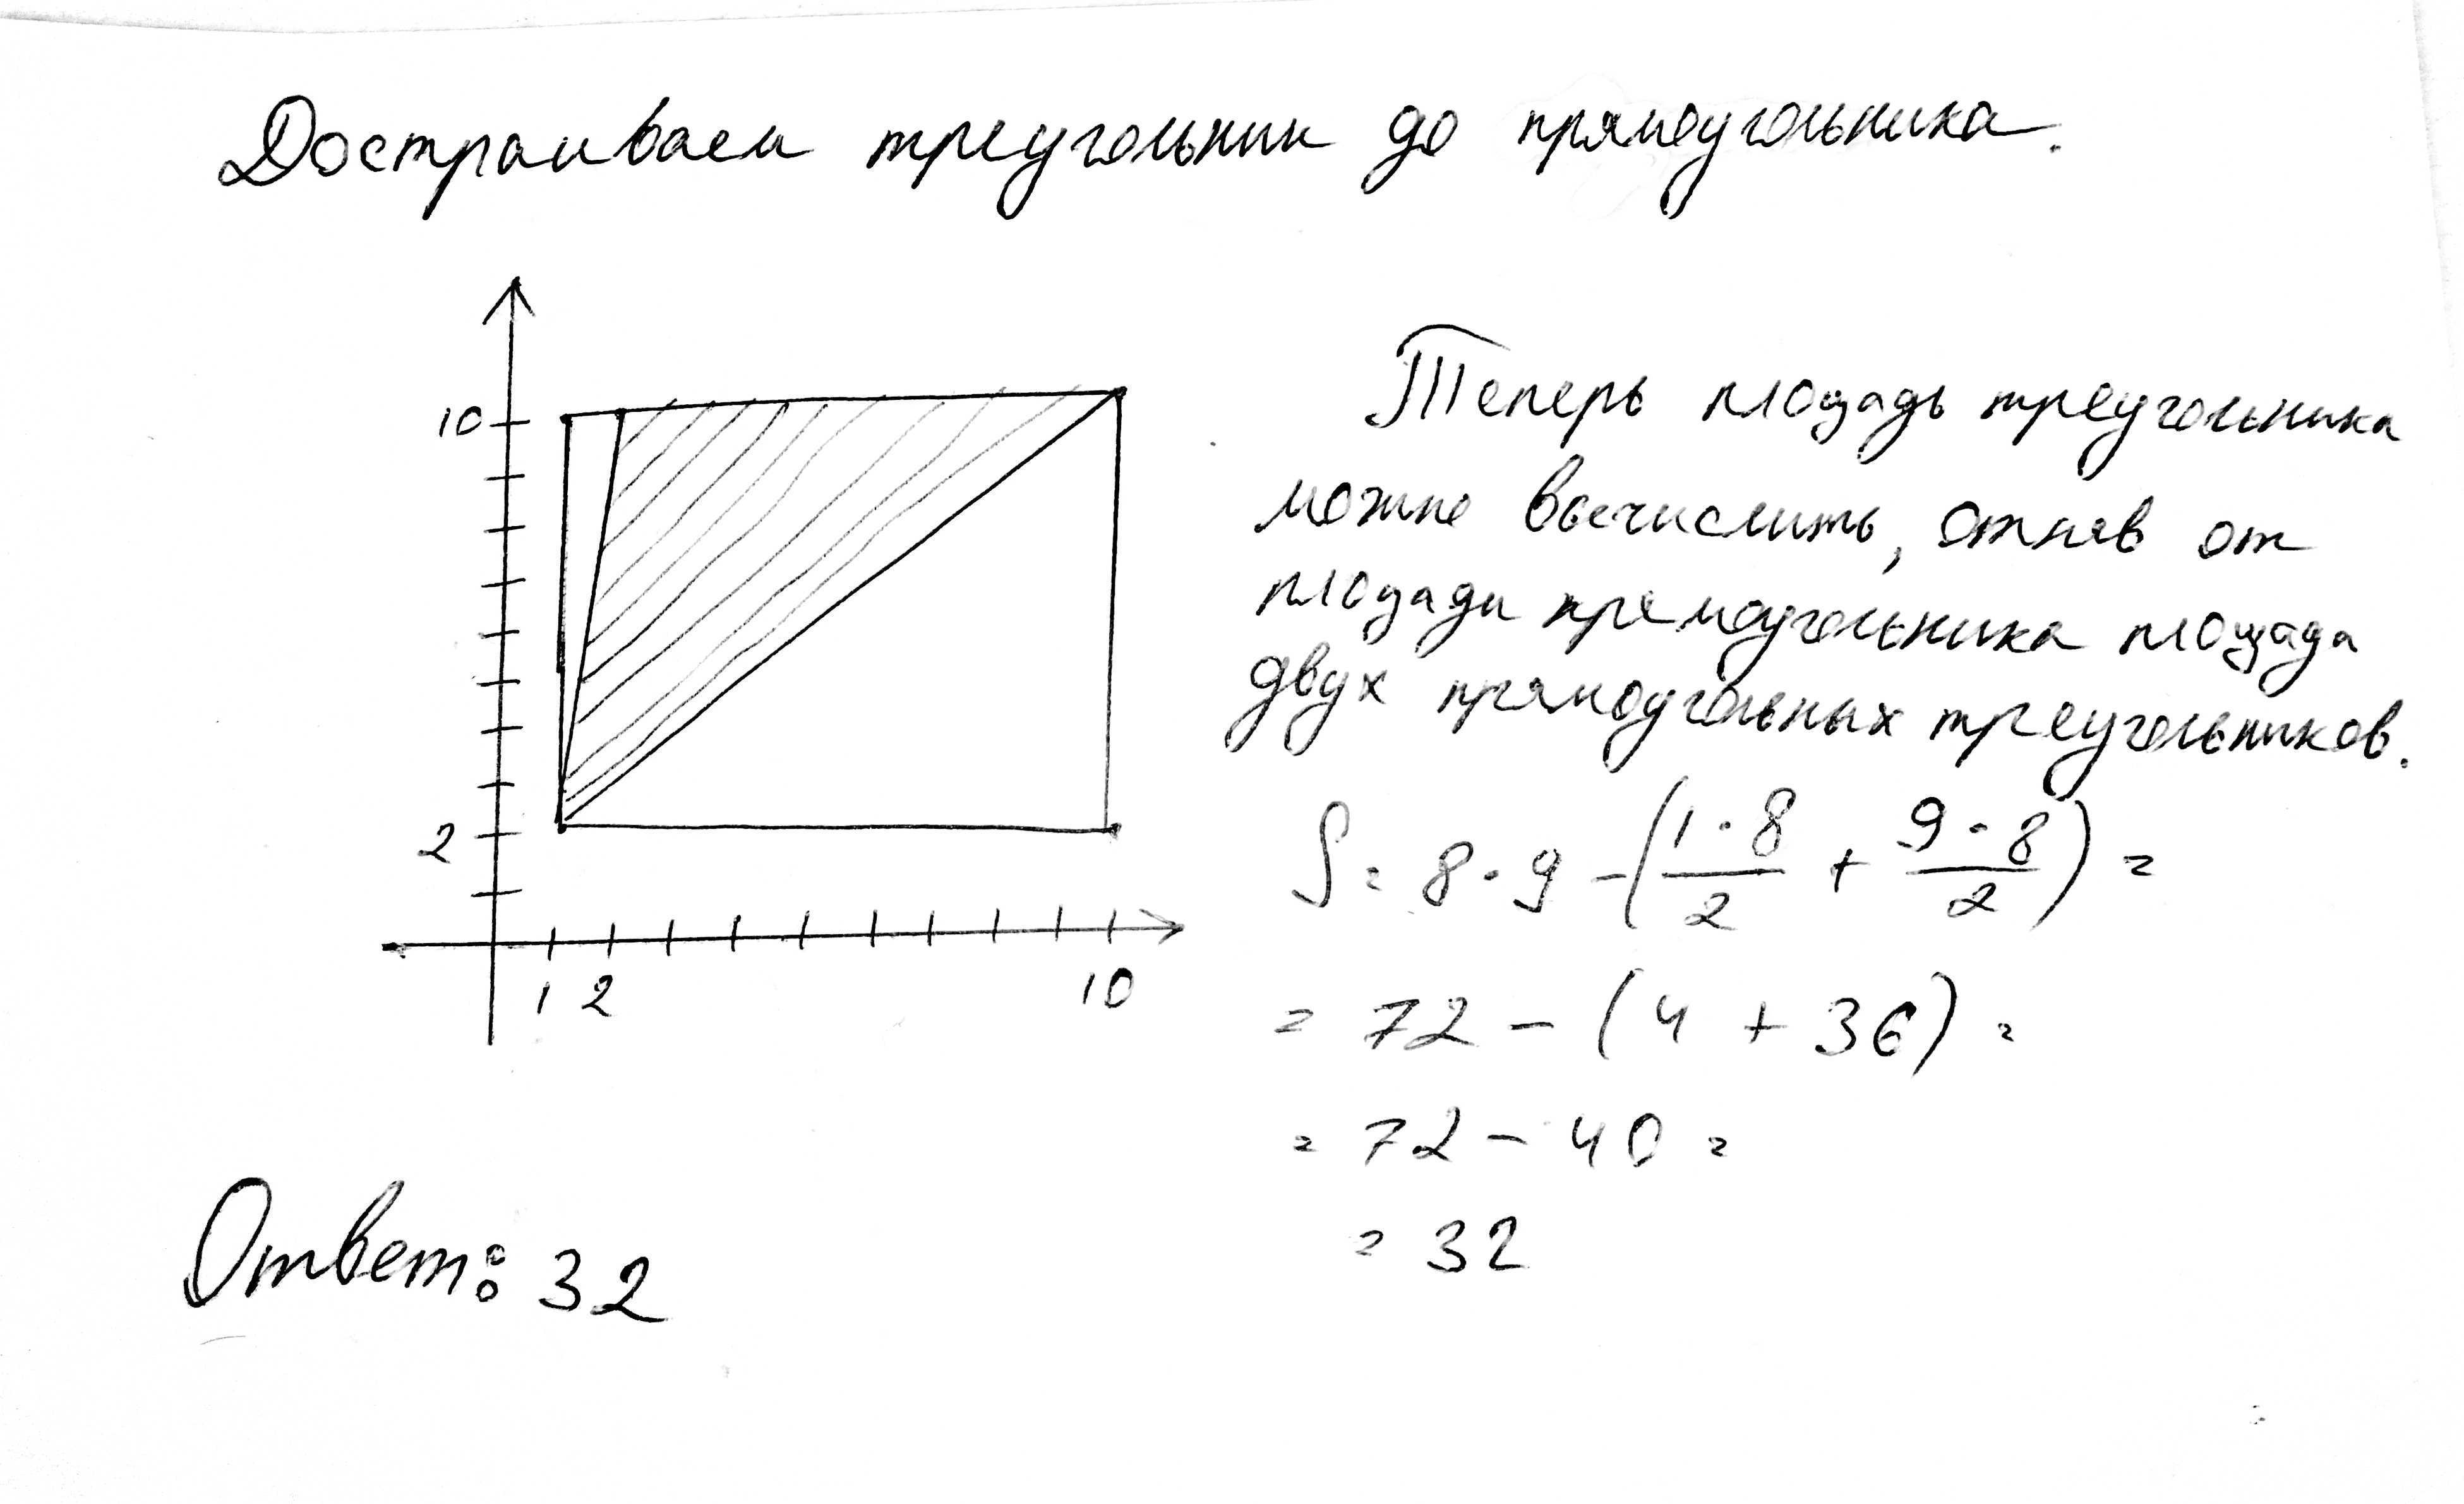 Достраиваем треугольник до прямоугольника.
Теперь площадь треугольника
можно вычислить, отняв от
площади прямоугольника площади
двух прямоугольных треугольников.
10
2
1 2 10
S = 8 · 9 - (1·8/2 + 9·8/2) =
= 72 - (4 + 36) =
= 72 - 40 =
= 32
Ответ: 32